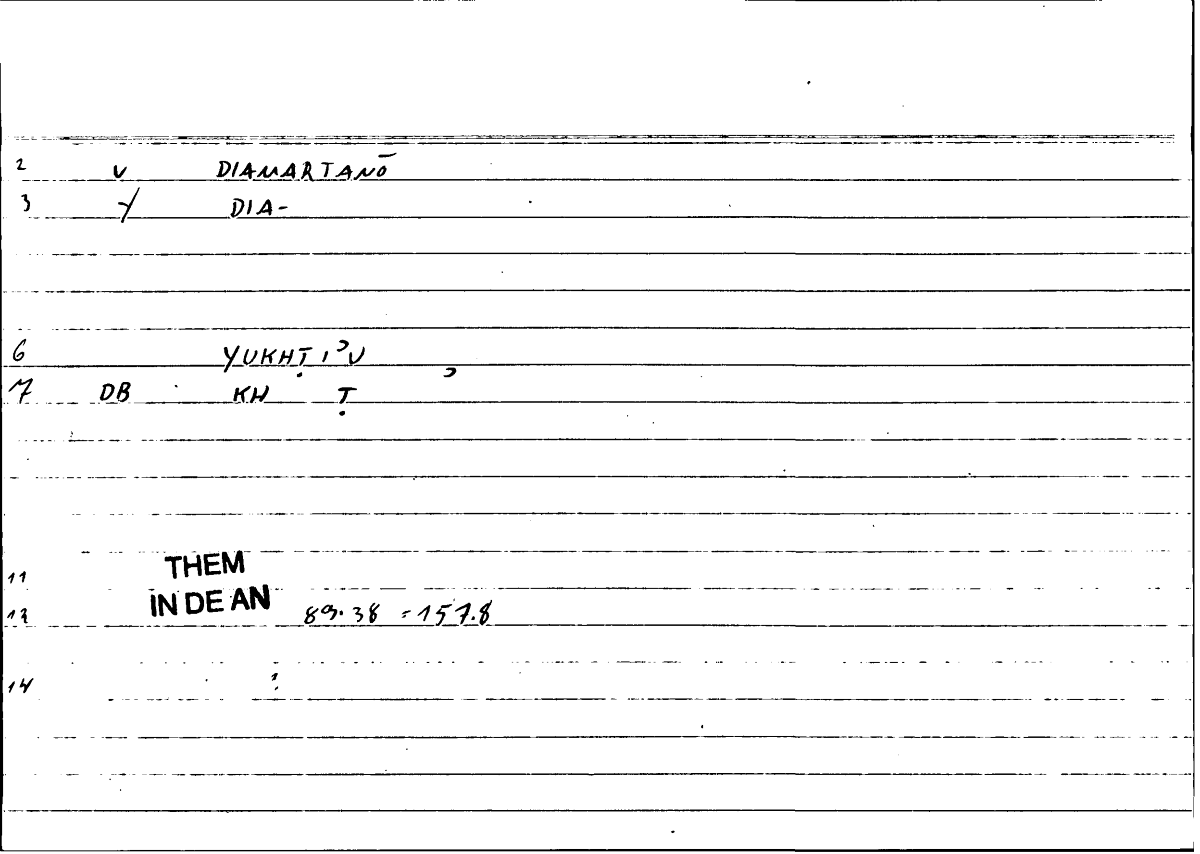 2 V DIAMARTANŌ
3 Y DIA-
6 YUKHṬIʾU
7 DB KH Ṭ ʾ
11 THEM
12 IN DE AN 89.38 = 157.8
14